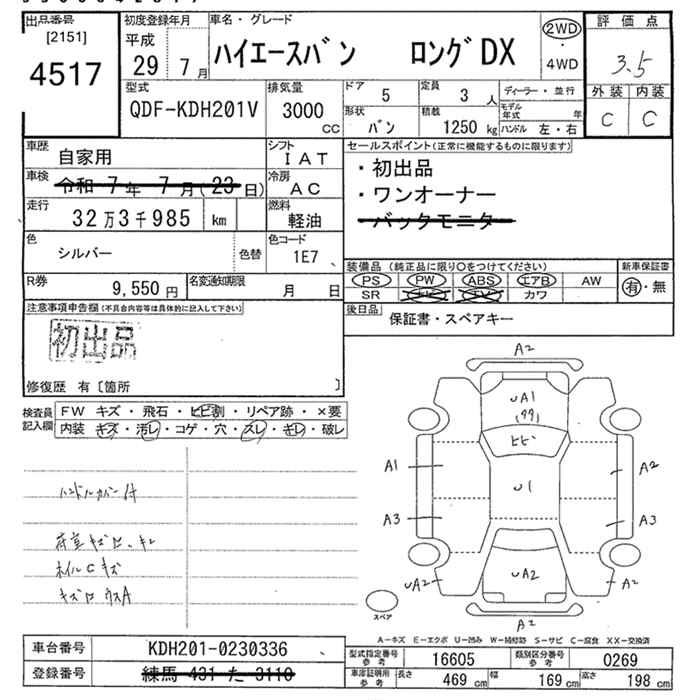 出品番号
[2151]
4517
初度登録年月
平成
29 7月
車名・グレード
ハイエースバン ロングDX
2WD
・
4WD
評価点
3.5
外装 内装
C C
型式
QDF-KDH201V
排気量
3000
CC
ドア 5
定員 3 人
ディーラー・並行
形状 バン
積載 1250 kg
モデル年式 年
ハンドル 左・右
車歴 自家用
シフト IAT
車検 令和 7年 7月(23日)
冷房 AC
走行 32万3千985 km
燃料 軽油
色 シルバー 色替
色コード 1E7
R券 9,550円
名変通知期限 月 日
セールスポイント(正常に機能するものに限ります)
・初出品
・ワンオーナー
バックモニター
装備品 (純正品に限り○をつけてください)
新車保証書
PS PW ABS エアB AW
有・無
SR カワ
後日品 保証書・スペアキー
注意事項申告欄(不具合内容等は具体的に記入して下さい)
初出品
修復歴 有〔箇所 〕
検査員記入欄
FW キズ・飛石・ヒビ割・リペア跡・×要
内装 キズ・汚レ・コゲ・穴・スレ・キレ・破レ
ハンドルカバー付
ホイルCキズ
A2
UA1
ヒビ
A1
U1
A2
A3
A3
UA2
UA2
A2
A2
スペア
A-キズ E-エクボ U-凹み W-補修跡 S-サビ C-腐食 XX-交換済
車台番号 KDH201-0230336
登録番号 練馬 431 た 3110
型式指定番号 参考 16605
類別区分番号 参考 0269
車庫証明用 参考 長さ 469 cm 幅 169 cm 高さ 198 cm